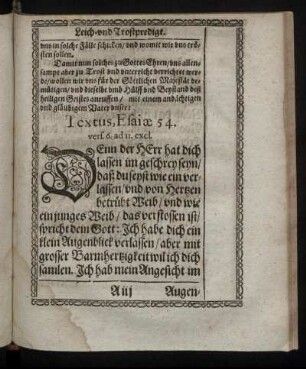 Leich-vnd Trostpredigt.
vns in solche Fälle schicken/ vnd womit wir vns trö-
sten sollen.
Damit nun solches zu Gottes Ehren/ vns allen-
sampt aber zu Trost vnd vnterricht verrichtet wer-
de/ wollen wir vns für der Göttlichen Majestät de-
mütigen/ vnd dieselbe vmb Hülff vnd Beystand deß
heiligen Geistes anruffen/ mit einem andächtigen
vnd gläubigem Vater vnser:
Textus, Esaiæ 54.
vers. 6. ad 11. excl.
DEnn der HErr hat dich
lassen im geschrey seyn/
daß du seyst wie ein ver-
lassen/ vnd von Hertzen
betrübt Weib/ vnd wie
ein junges Weib/ das verstossen ist/
spricht dein Gott: Ich habe dich ein
klein Augenblick verlassen/ aber mit
grosser Barmhertzigkeit wil ich dich
samlen. Ich hab mein Angesicht im
A iij Augen-